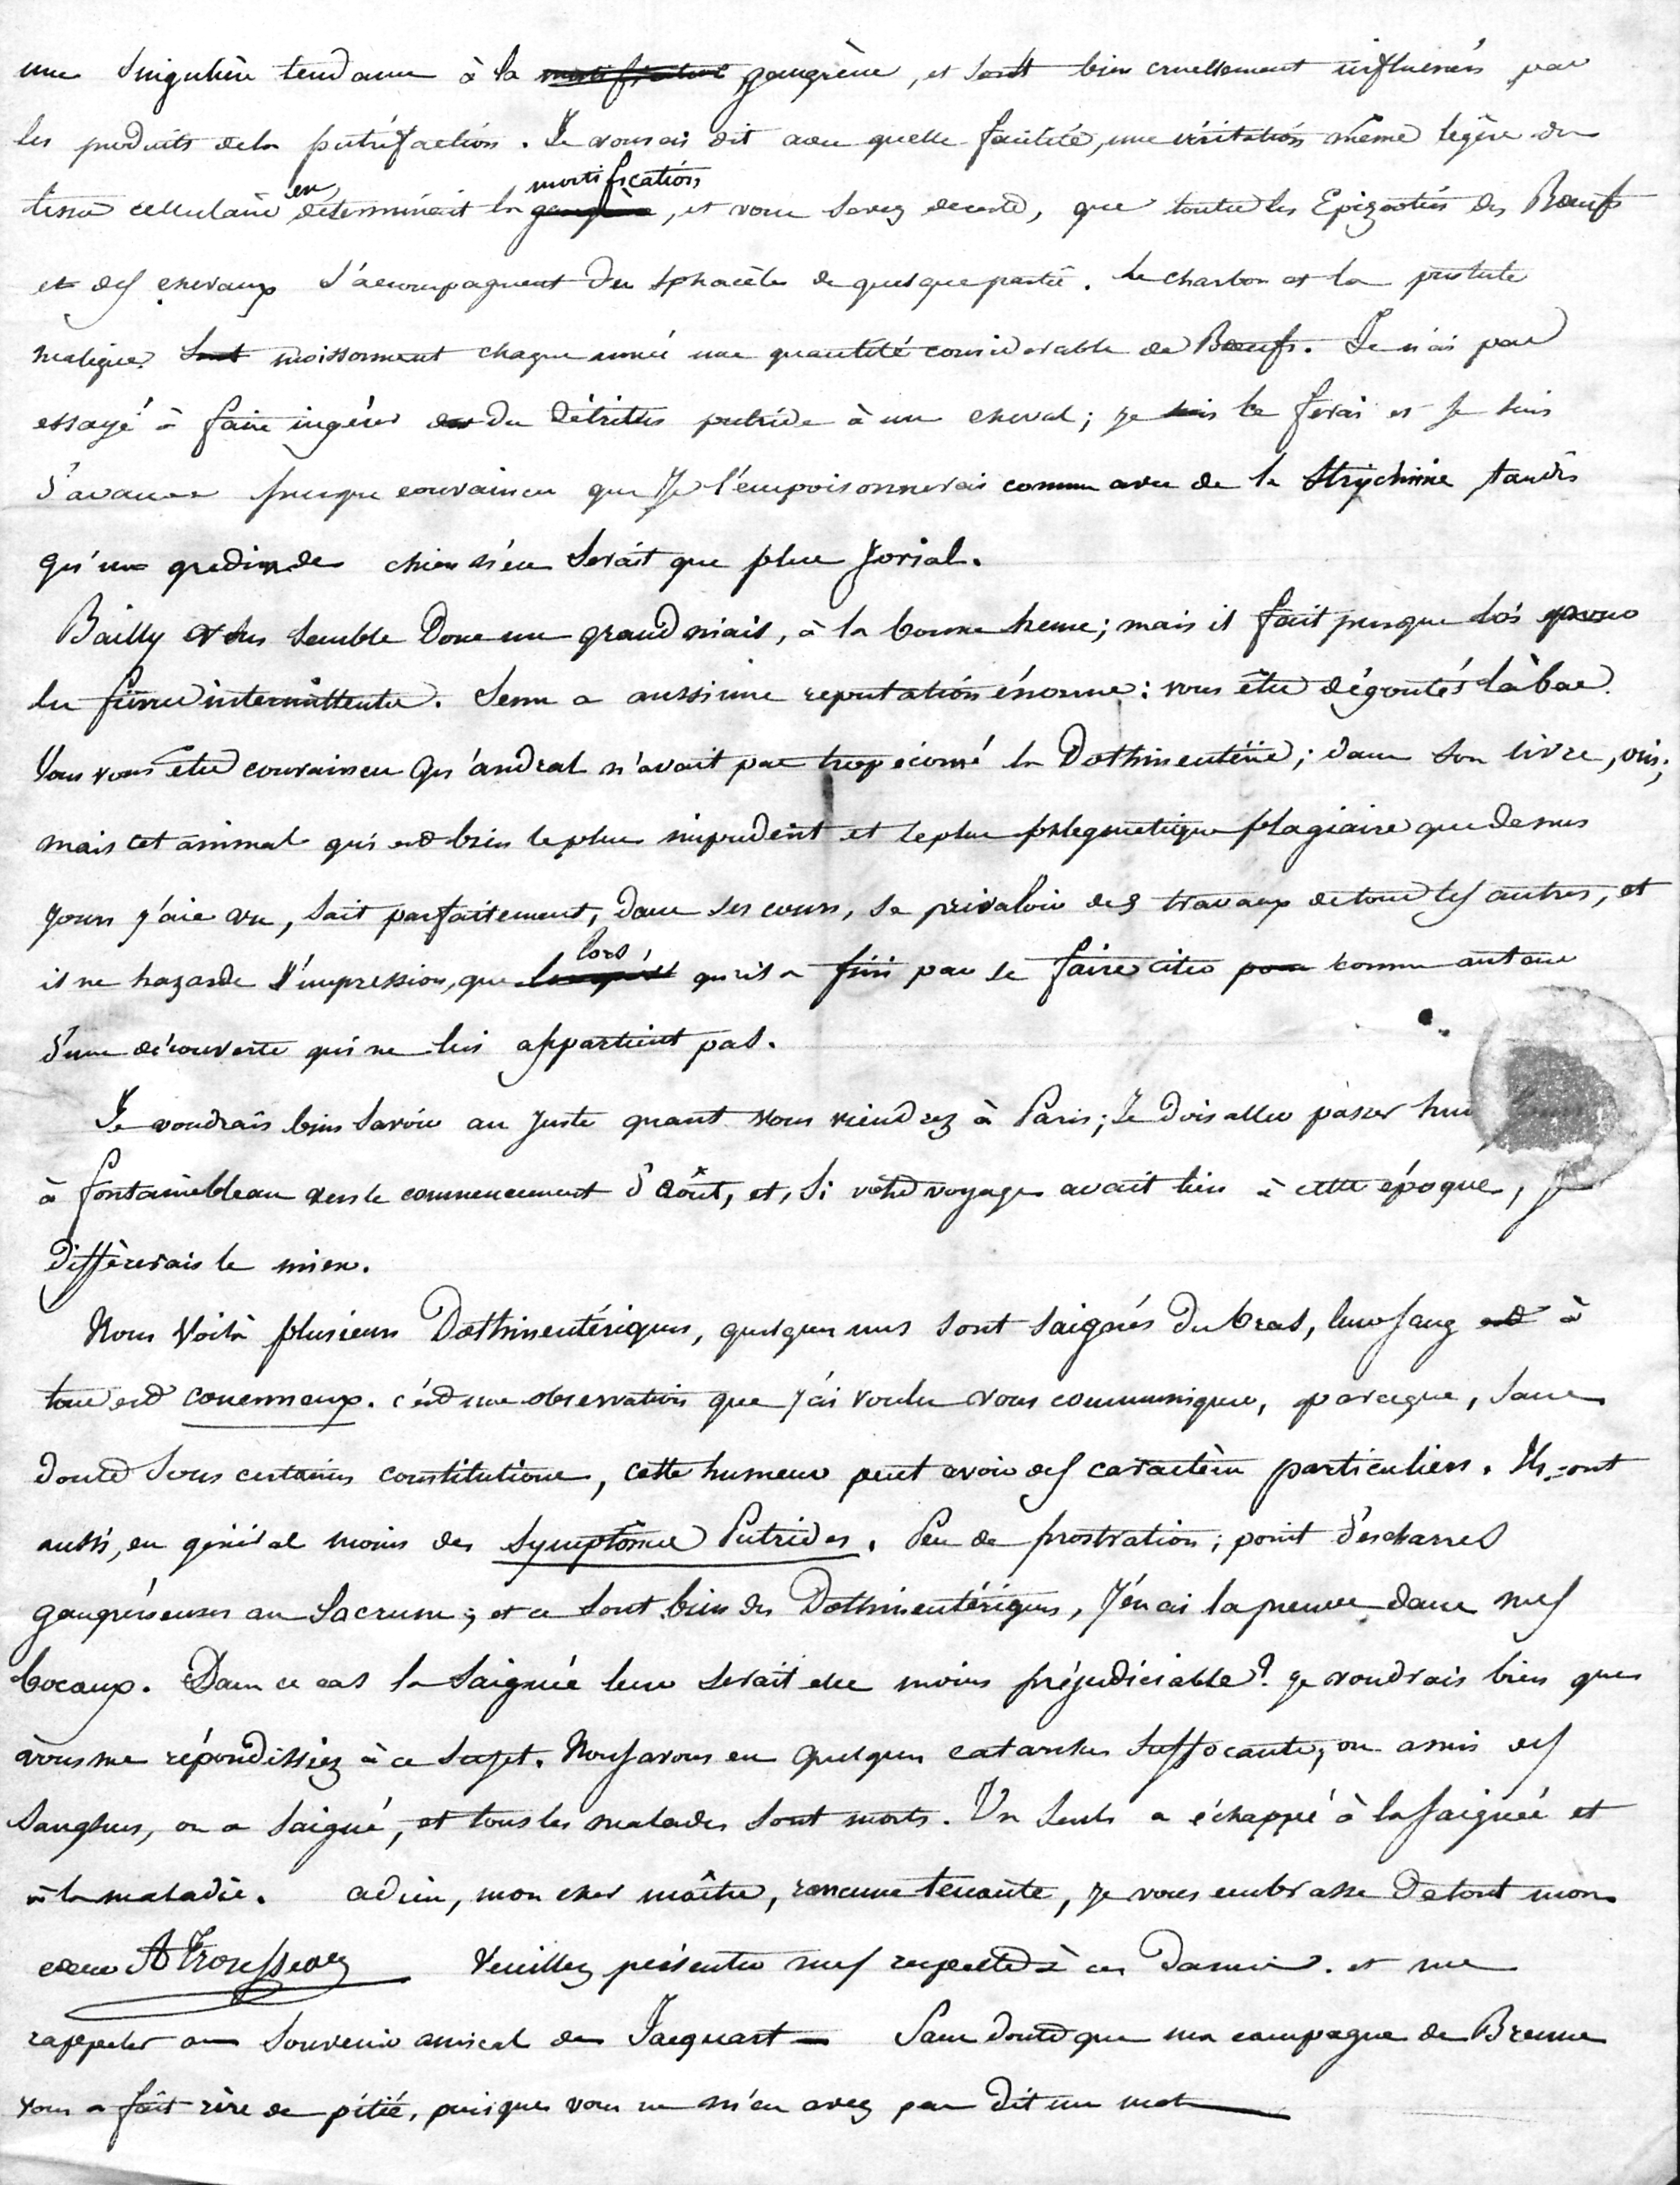 une singulière tendance à la mortification gangrène, et sont bien cruellement influencés par
les produits dela putréfaction. Je vous ai dit avec quelle facilité, une irritation même legère du
tissu cellulaire en déterminait la gangrène mortification, et vous savez dereste, que toutes les Epizooties des Bœufs
et des chevaux s'accompagnent du sphacèle de quelque partie. Le charbon et la pustule
maligne sont moissonnent chaque année une quantité considerable de Bœufs. Je n'ai pas
essayé à faire ingérer du détritus putride à un cheval; je le ferai et je suis
d'avance presque convaincu que je l'empoisonnerai comme avec de la strychnine, tandis
qu'un gredin de chien n'en serait que plus jovial.
Bailly vous semble donc un grand niais, à la bonne heure; mais il fait presque dós
les fièvres intermittentes. Senn a aussi une reputation énorme: vous êtes dégoutés làbas.
Vous vous êtes convaincu qu'andral n'avait pas trop écorné la Dothinentérie; dans son livre, oui;
mais cet animal qui est bien leplus impudent et leplus phlegmatique plagiaire que de nos
jours j'aie vu, sait parfaitement, dans ses cours, se prévaloir des travaux detous les autres, et
il ne hazarde l'impression, que lors qu'il a fini par se faire citer pour comme auteur
d'une découverte qui ne lui appartient pas.
Je voudrais bien savoir au juste quant vous viendrez à Paris; Je dois aller passer
à fontainebleau vers le commencement d'août, et, si votre voyage avait lieu à cette époque, je
différerais le mien.
Nous Voilà plusieurs Dothinentériques, quelques uns sont saignés du bras, leur sang est à
tous est couenneux. c'est une observation que j'ai voulu vous communiquer, parceque, sans
doute sous certaines constitutions, cette humeur peut avoir des caractères particuliers. Ils ont
aussi, en général moins des symptômes Putrides. Peu de prostration; point d'escharres
gangréneuses au Sacrum; et ce sont bien des Dothinentériques, j'en ai la preuve dans mes
bocaux. Dans ce cas la saignée leur serait elle moins préjudiciable? je voudrais bien que
vous me répondissiez à ce sujet. Nous avons eu quelques catarrhes suffocants, on a mis des
sangsues, on a saigné, et tous les malades sont morts. Un seul a échappé à la saignée et
à la maladie. adieu, mon cher maître, rancune tenante, je vous embrasse de tout mon
cœur A Trousseau Veuillez présenter mes respects à ces Dames. et me
rappeler au souvenir amical de Jacquart — Sans doute que ma campagne de Brenne
vous a fait rire de pitié, puisque vous ne m'en avez pas dit un mot